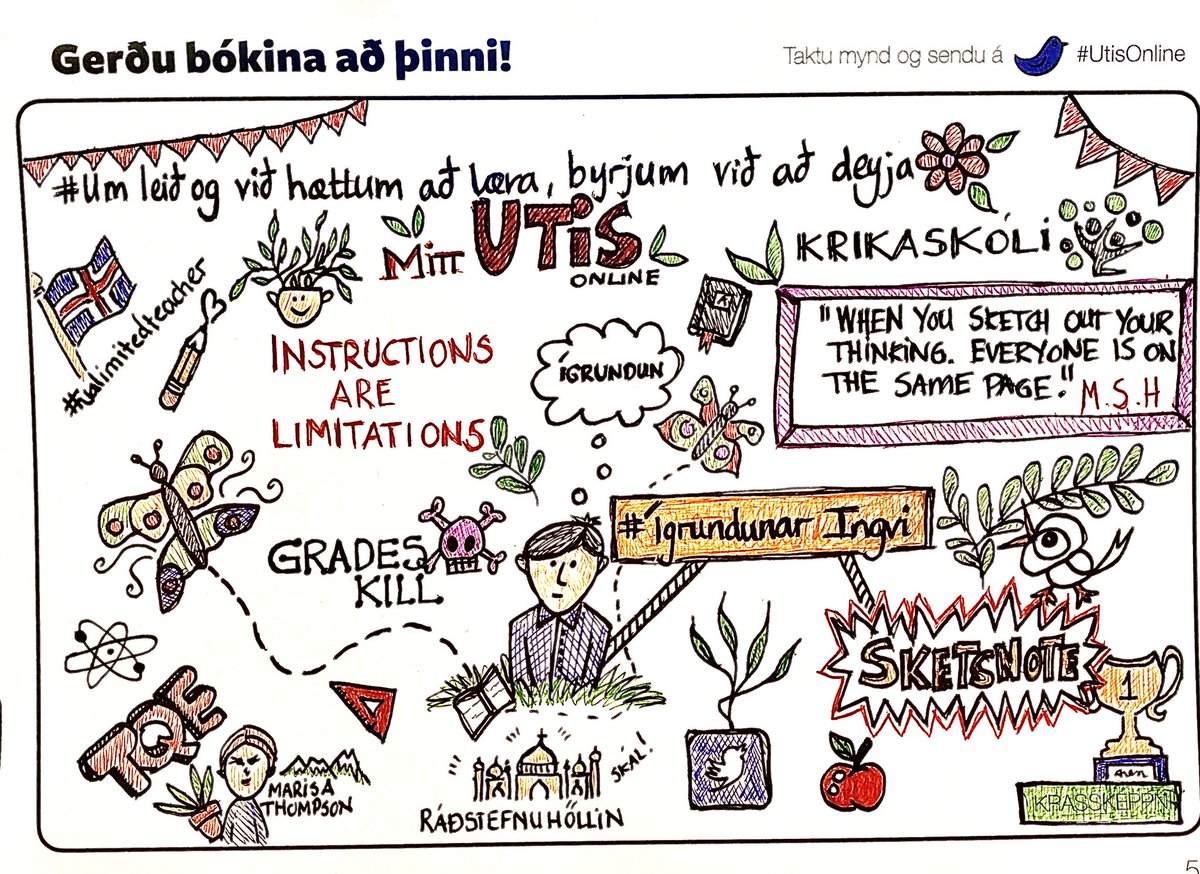 Gerðu bókina að þinni!
Taktu mynd og sendu á #UtisOnline
#Um leið og við hættum að læra, byrjum við að deyja
Mitt UTiS
ONLINE
KRIKASKÓLI
"WHEN YOU SKETCH OUT YOUR
THINKING. EVERYONE IS ON
THE SAME PAGE."
M.S.H
INSTRUCTIONS
ARE
LIMITATIONS
ÍGRUNDUN
#Ígrundunar Ingvi
GRADES
KILL
SKETSNOTE
1
TQE
MARISA
THOMPSON
SKÁL!
RÁÐSTEFNUHÖLLIN
KRASSKEPPNI
5